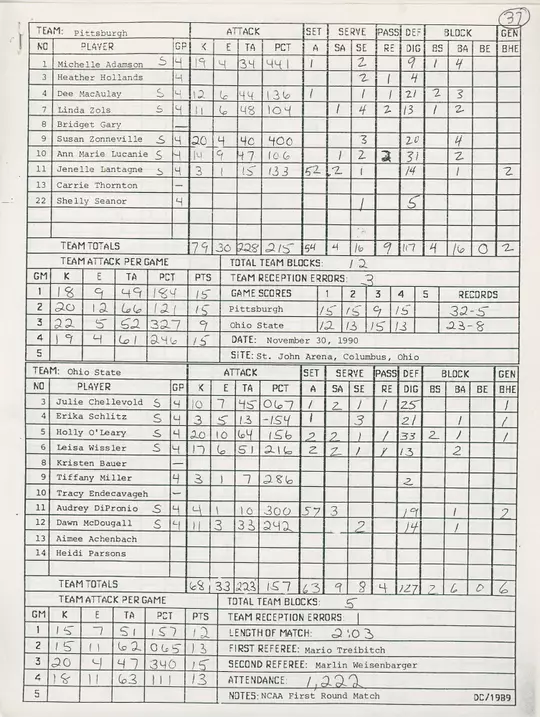 37
TEAM: Pittsburgh ATTACK SET SERVE PASS DEF BLOCK GEN
NO PLAYER GP K E TA PCT A SA SE RE DIG BS BA BE BHE
1 Michelle Adamson S 4 19 4 34 441 1 2 9 1 4
3 Heather Hollands 4 2 1 4
4 Dee MacAulay S 4 12 6 44 136 1 1 1 21 2 3
7 Linda Zols S 4 11 6 48 104 1 4 2 13 1 2
8 Bridget Gary —
9 Susan Zonneville S 4 20 4 40 400 3 20 4
10 Ann Marie Lucanie S 4 14 9 47 106 1 2 2 31 2
11 Jenelle Lantagne S 4 3 1 15 133 52 2 1 14 1 2
13 Carrie Thornton —
22 Shelly Seanor 4 1 5
TEAM TOTALS 79 30 228 215 54 4 16 9 117 4 16 0 2
TEAM ATTACK PER GAME TOTAL TEAM BLOCKS: 12
GM K E TA PCT PTS TEAM RECEPTION ERRORS: 3
1 18 9 49 184 15 GAME SCORES 1 2 3 4 5 RECORDS
2 20 12 66 121 15 Pittsburgh 15 15 9 15 32-5
3 22 5 52 327 9 Ohio State 12 13 15 13 23-8
4 19 4 61 246 15 DATE: November 30, 1990
5 SITE: St. John Arena, Columbus, Ohio
TEAM: Ohio State ATTACK SET SERVE PASS DEF BLOCK GEN
NO PLAYER GP K E TA PCT A SA SE RE DIG BS BA BE BHE
3 Julie Chellevold S 4 10 7 45 067 1 2 1 1 25 1
4 Erika Schlitz S 4 3 5 13 -154 1 3 21 1 1
5 Holly O'Leary S 4 20 10 64 156 2 2 1 1 33 2 1 1
6 Leisa Wissler S 4 17 6 51 216 2 2 1 1 13 2
8 Kristen Bauer —
9 Tiffany Miller 4 3 1 7 286 2
10 Tracy Endecavageh —
11 Audrey DiPronio S 4 4 1 10 300 57 3 19 1 2
12 Dawn McDougall S 4 11 3 33 242 2 14 1
13 Aimee Achenbach
14 Heidi Parsons
TEAM TOTALS 68 33 223 157 63 9 8 4 127 2 6 0 6
TEAM ATTACK PER GAME TOTAL TEAM BLOCKS: 5
GM K E TA PCT PTS TEAM RECEPTION ERRORS 1
1 15 7 51 157 12 LENGTH OF MATCH: 2:03
2 15 11 62 065 13 FIRST REFEREE: Mario Treibitch
3 20 4 47 340 15 SECOND REFEREE: Marlin Weisenbarger
4 18 11 63 111 13 ATTENDANCE: 1,222
5 NOTES: NCAA First Round Match DC/1989